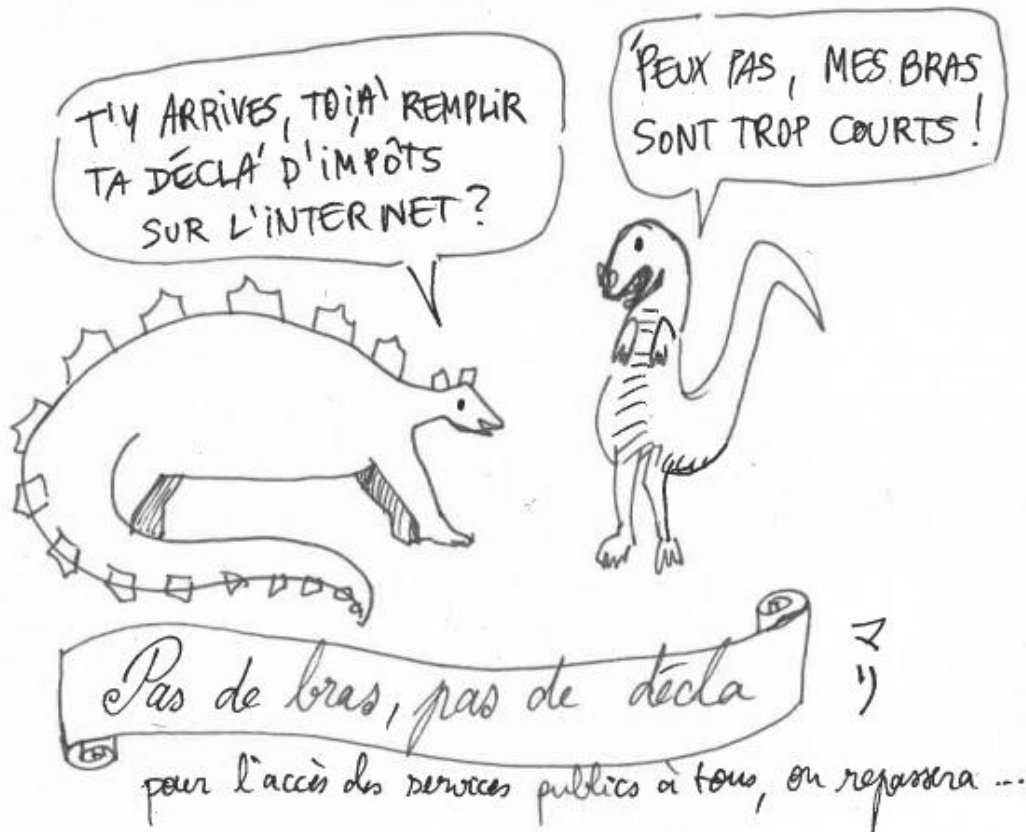 T'Y ARRIVES, TOI, À REMPLIR
TA DÉCLA' D'IMPÔTS
SUR L'INTERNET ?
'PEUX PAS, MES BRAS
SONT TROP COURTS !
Pas de bras, pas de décla
マリ
pour l'accès des services publics à tous, on repassera ...